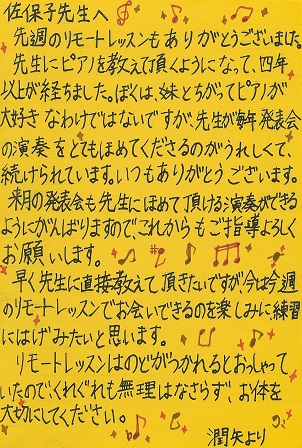 佐保子先生へ
先週のリモートレッスンもありがとうございました。
先生にピアノを教えて頂くようになって、四年
以上が経ちました。ぼくは、妹とちがってピアノが
大好きなわけではないですが、先生が毎年発表会
の演奏をとてもほめてくださるのがうれしくて、
続けられています。いつもありがとうございます。
来月の発表会も先生にほめて頂ける演奏ができる
ようにがんばりますのでこれからもご指導よろしく
お願いします。
早く先生に直接教えて頂きたいですが、今は今週
のリモートレッスンでお会いできるのを楽しみに練習
にはげみたいと思います。
リモートレッスンはのどがつかれるとおっしゃって
いたので、くれぐれも無理はなさらず、お体を
大切にしてください。
潤矢より